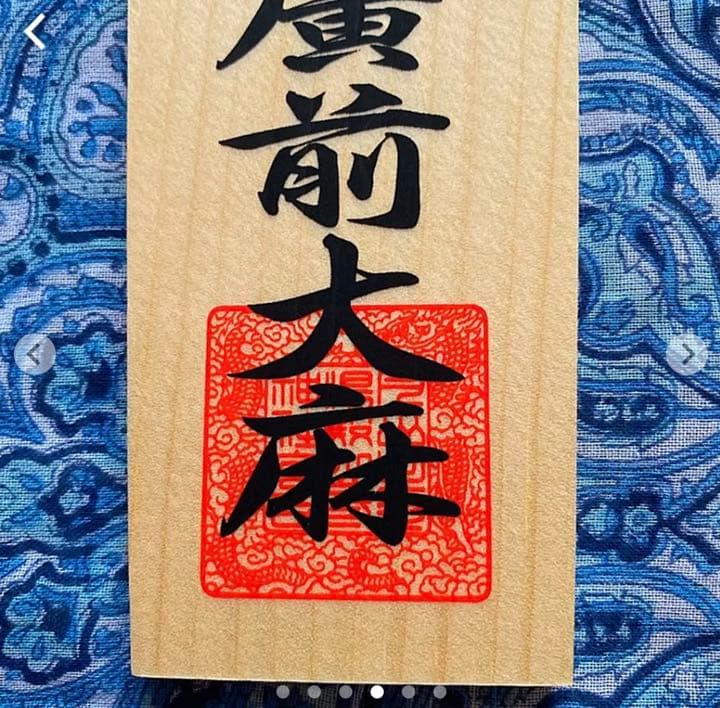 廣前大麻